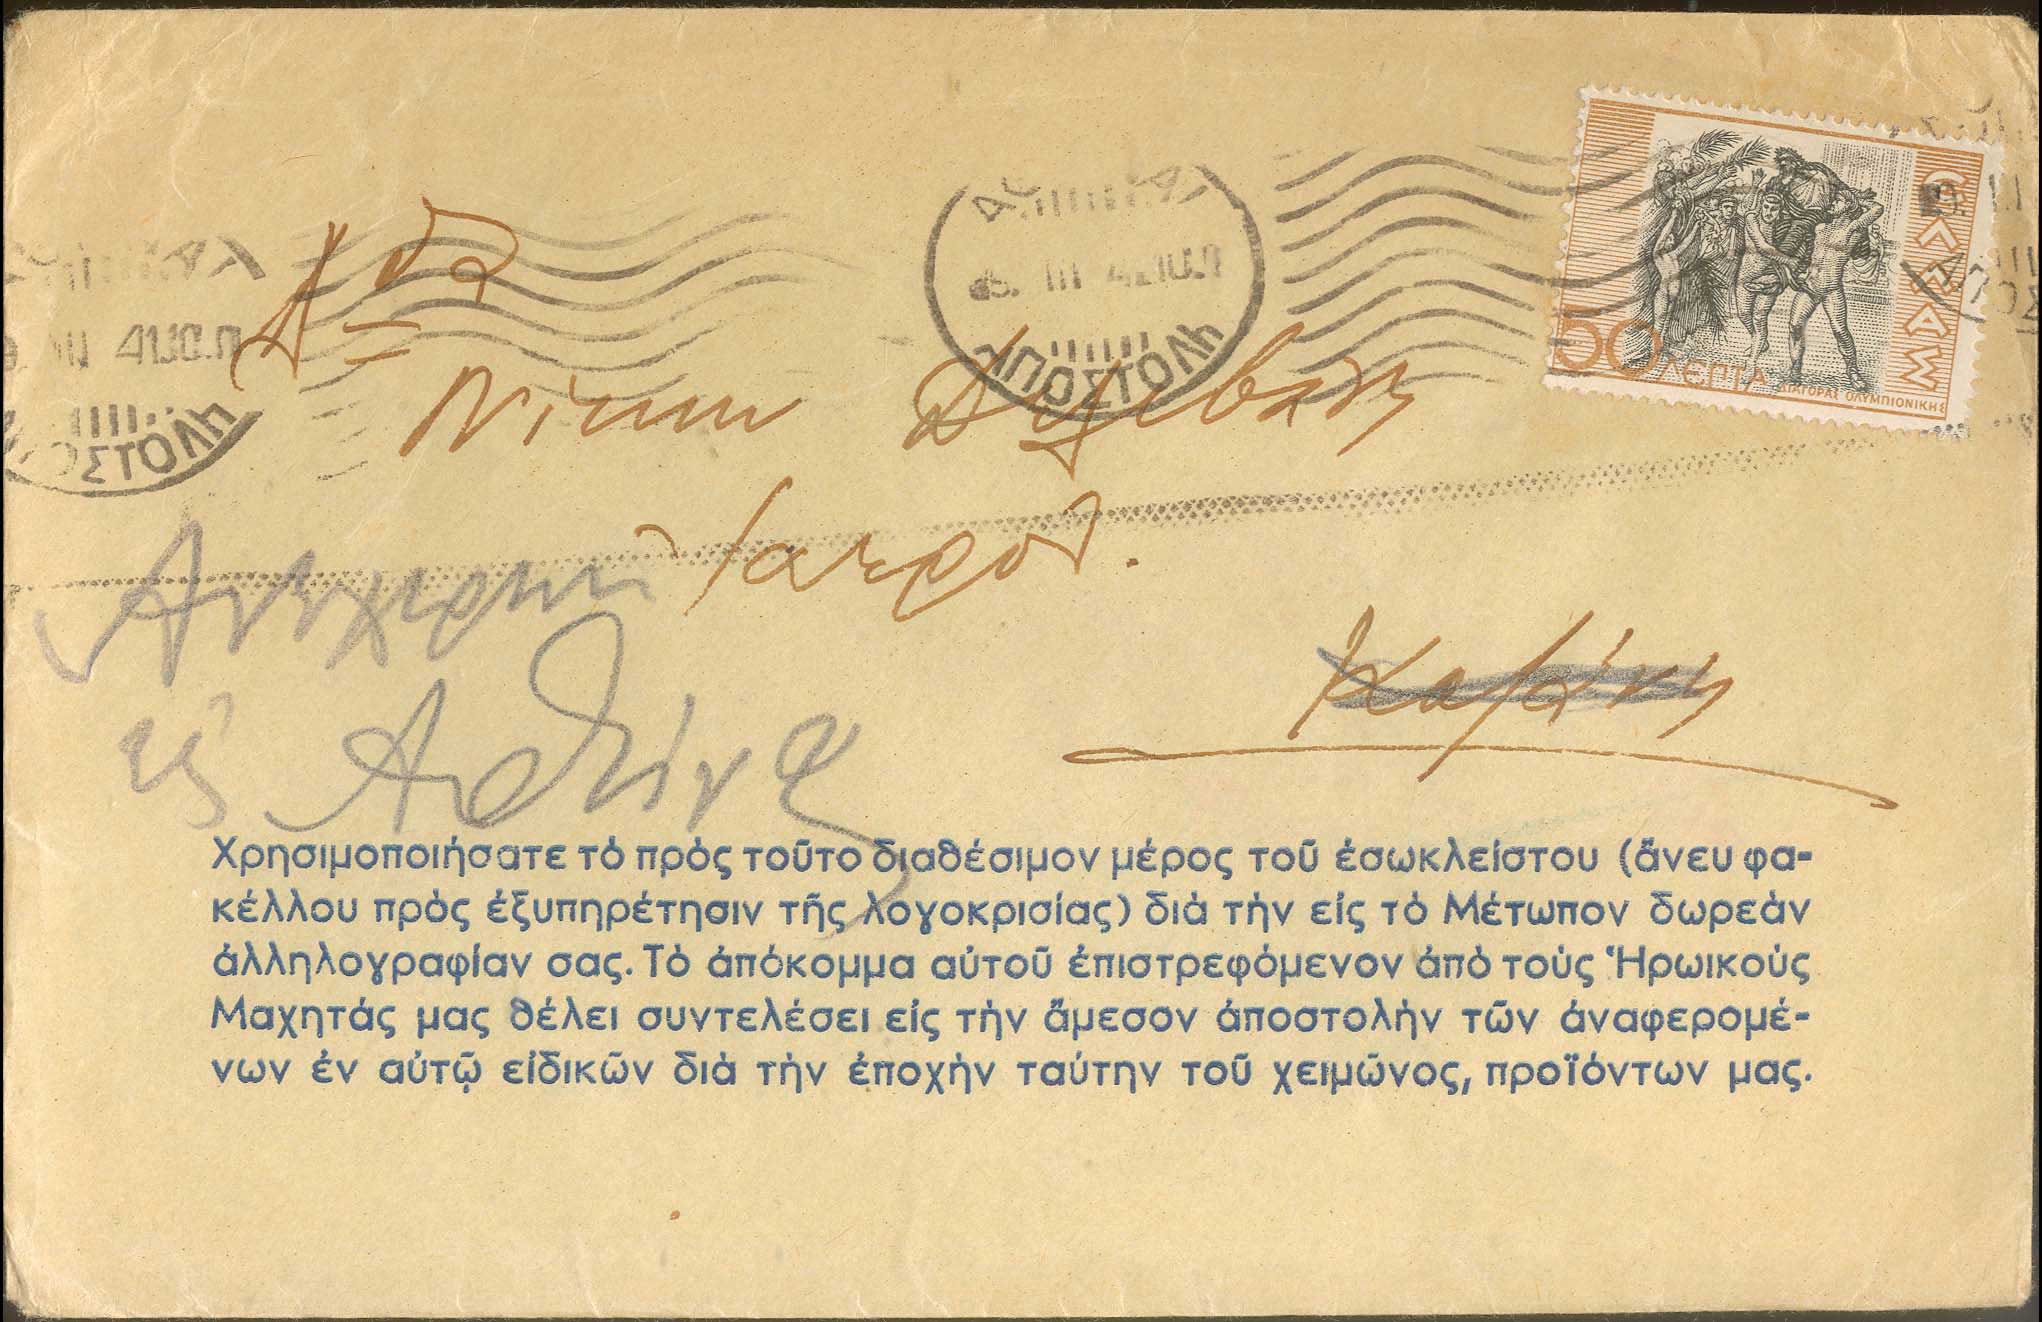 ΕΛΛΑΣ
50 ΛΕΠΤΑ
ΔΙΑΓΟΡΑΣ ΟΛΥΜΠΙΟΝΙΚΗΣ
ΑΠΟΣΤΟΛΗ
Νίκον
Ιατρόν.
Κοζάνην
Ανεχώρησεν
εἰς Αθήνας
Χρησιμοποιήσατε τὸ πρὸς τοῦτο διαθέσιμον μέρος τοῦ ἐσωκλείστου (ἄνευ φα-
κέλλου πρὸς ἐξυπηρέτησιν τῆς λογοκρισίας) διὰ τὴν εἰς τὸ Μέτωπον δωρεὰν
ἀλληλογραφίαν σας. Τὸ ἀπόκομμα αὐτοῦ ἐπιστρεφόμενον ἀπὸ τοὺς Ἡρωικοὺς
Μαχητάς μας θέλει συντελέσει εἰς τὴν ἄμεσον ἀποστολὴν τῶν ἀναφερομέ-
νων ἐν αὐτῷ εἰδικῶν διὰ τὴν ἐποχὴν ταύτην τοῦ χειμῶνος, προϊόντων μας.